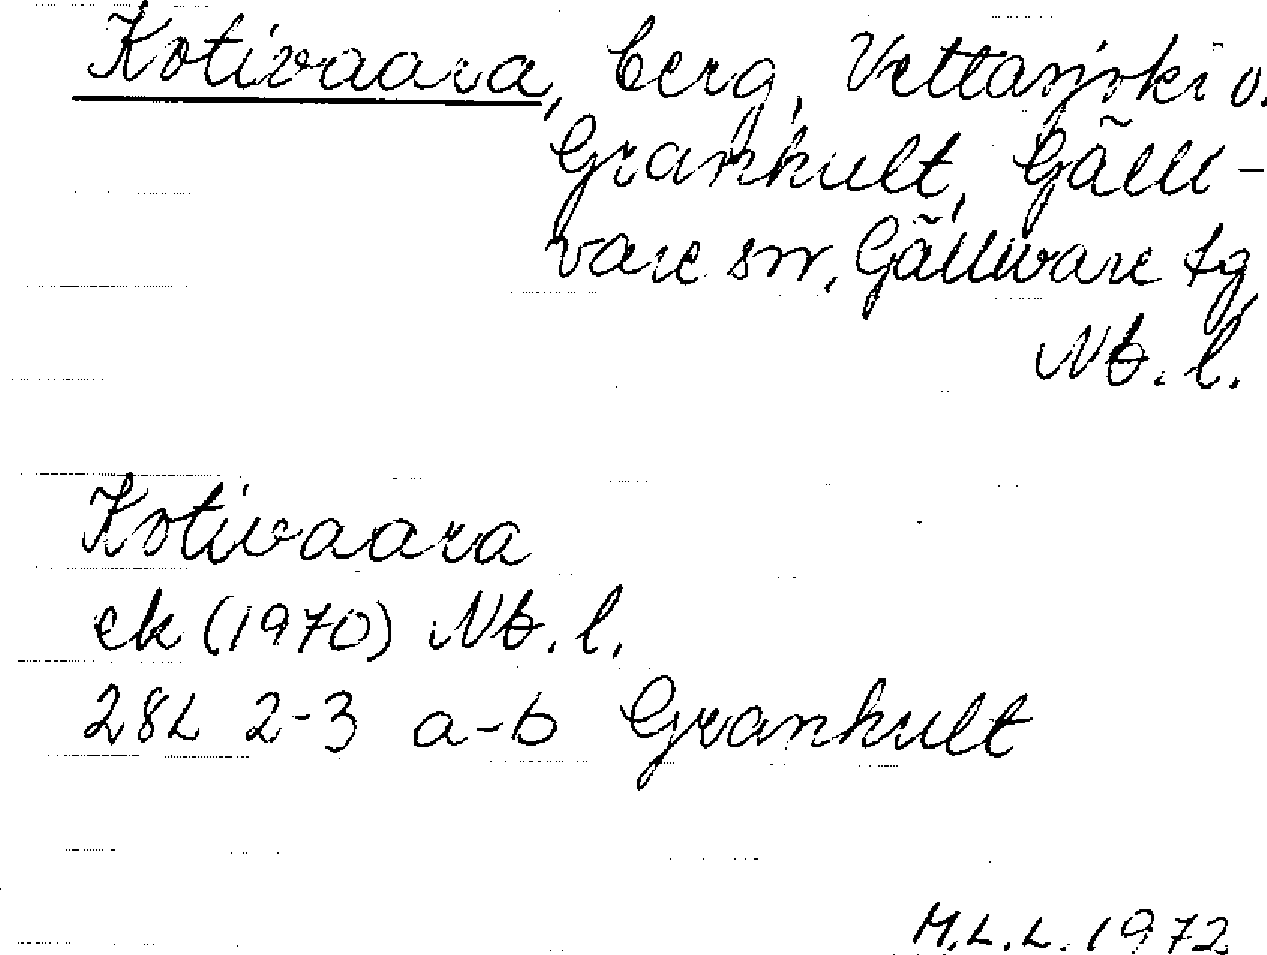 Kotivaara, berg, Vettasjoki o.
Granhult, Gälli-
vare sn, Gällivare tg,
Nb. l.
Kotivaara
ek (1970) Nb. l.
28L 2-3 a-b Granhult
M.L.L. 1972